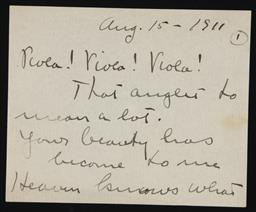 Aug. 15 - 1911
1
Viola! Viola! Viola!
That ought to
mean a lot.
Your beauty has
become to me
Heaven knows what